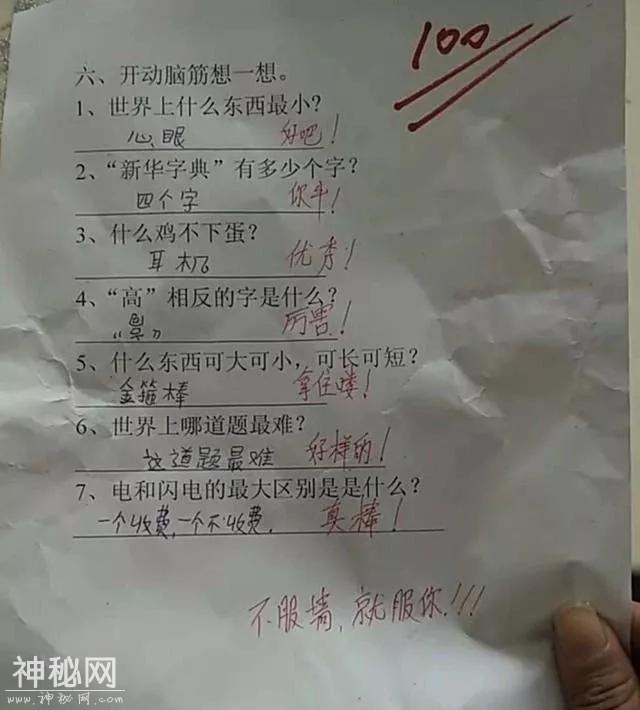 100
六、开动脑筋想一想。
1、世界上什么东西最小?
心眼 好吧!
2、“新华字典”有多少个字?
四个字 你牛!
3、什么鸡不下蛋?
耳机 优秀!
4、“高”相反的字是什么?
厉害!
5、什么东西可大可小，可长可短?
金箍棒 拿住喽!
6、世界上哪道题最难?
这道题最难 好样的!
7、电和闪电的最大区别是是什么?
一个收费,一个不收费. 真棒!
不服墙,就服你!!!
神秘网
www.神秘网.com